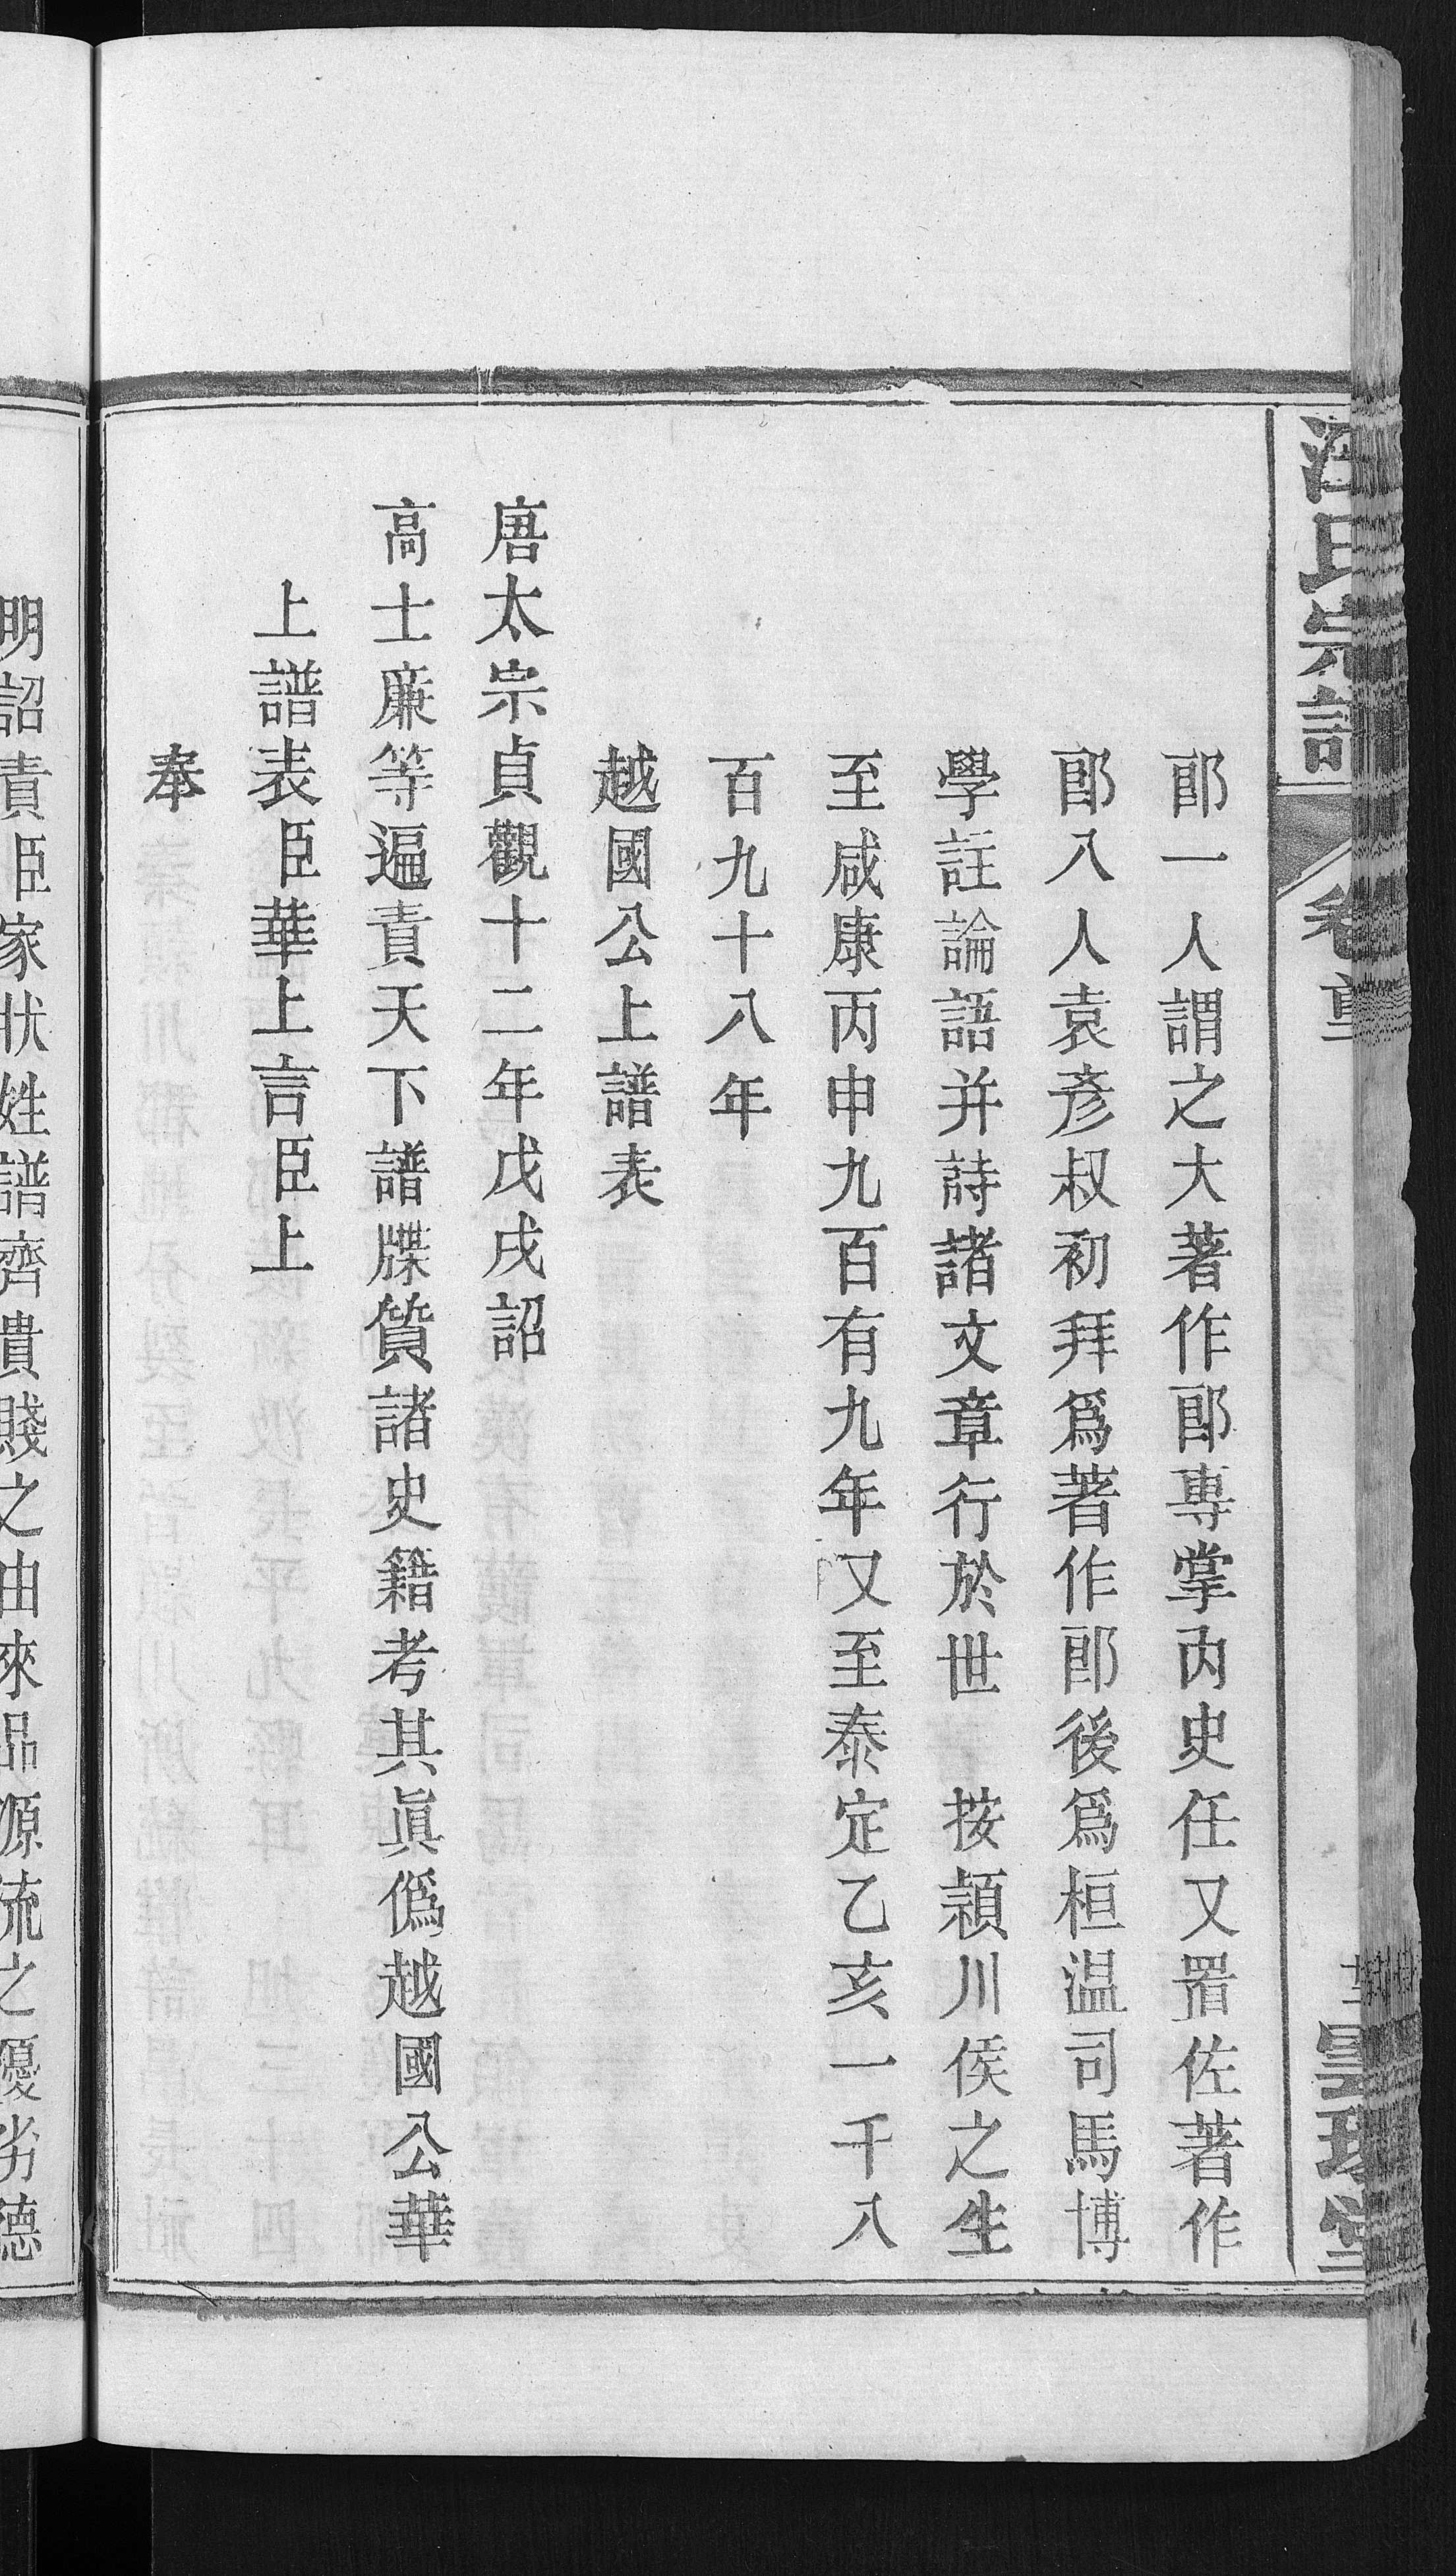 汪氏宗譜
卷首
郎一人謂之大著作郎專掌內史任又置佐著作
郎八人袁彥叔初拜爲著作郎後爲桓温司馬博
學註論語并詩諸文章行於世 按潁川侯之生
至咸康丙申九百有九年又至泰定乙亥一千八
百九十八年
越國公上譜表
唐太宗貞觀十二年戊戌詔
高士廉等遍責天下譜牒質諸史籍考其眞僞越國公華
上譜表臣華上言臣上
奉
明詔責臣家狀姓譜齊貴賤之由來品源流之優劣德